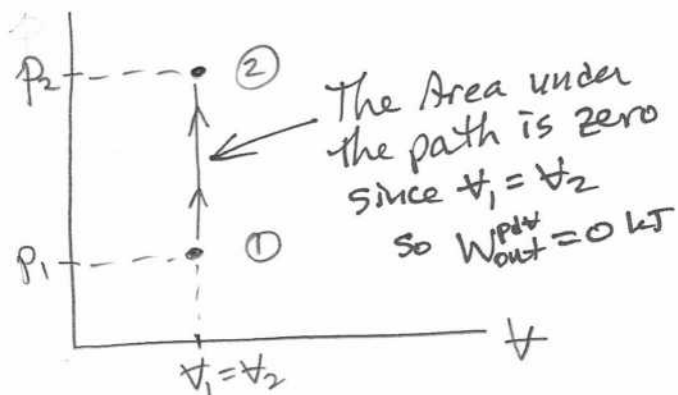 P₂
②
The Area under
the path is zero
since V̶₁ = V̶₂
so W_out^pdV̶ = 0 kJ
①
P₁
V̶
V̶₁ = V̶₂